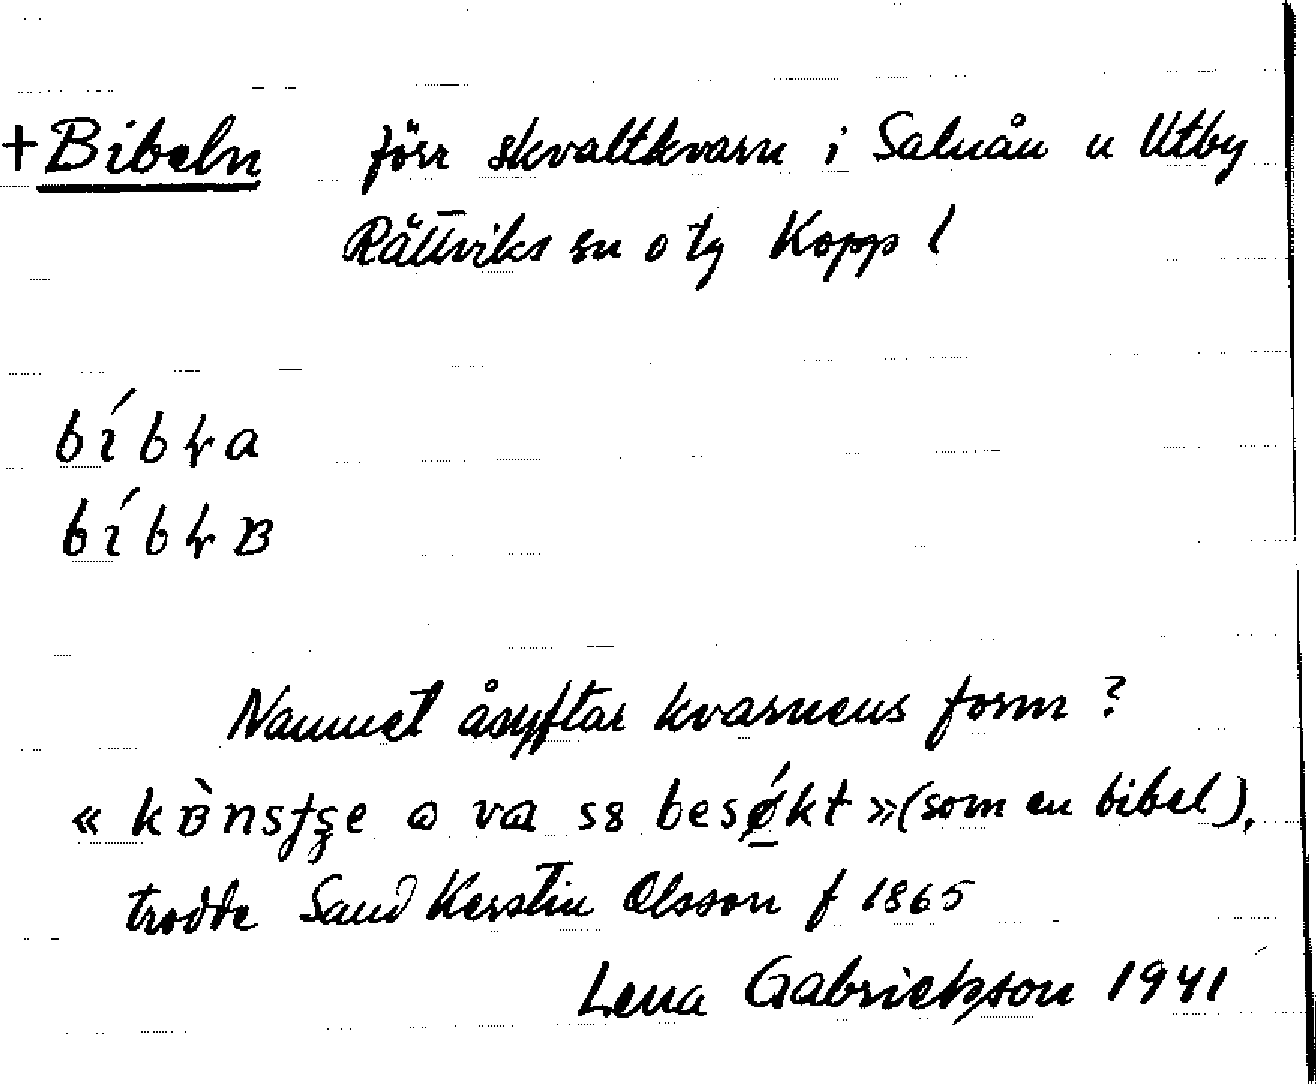 +Bibeln förr skvaltkvarn i Saluån u Utby
Rättviks sn o tg Kopp l
bı́bɫa
bı́bɫʙ
Namnet åsyftar kvarnens form?
« besǿkt » (som en bibel),
trodde Saud Kerstin Olsson f 1865
Lena Gabrielsson 1941